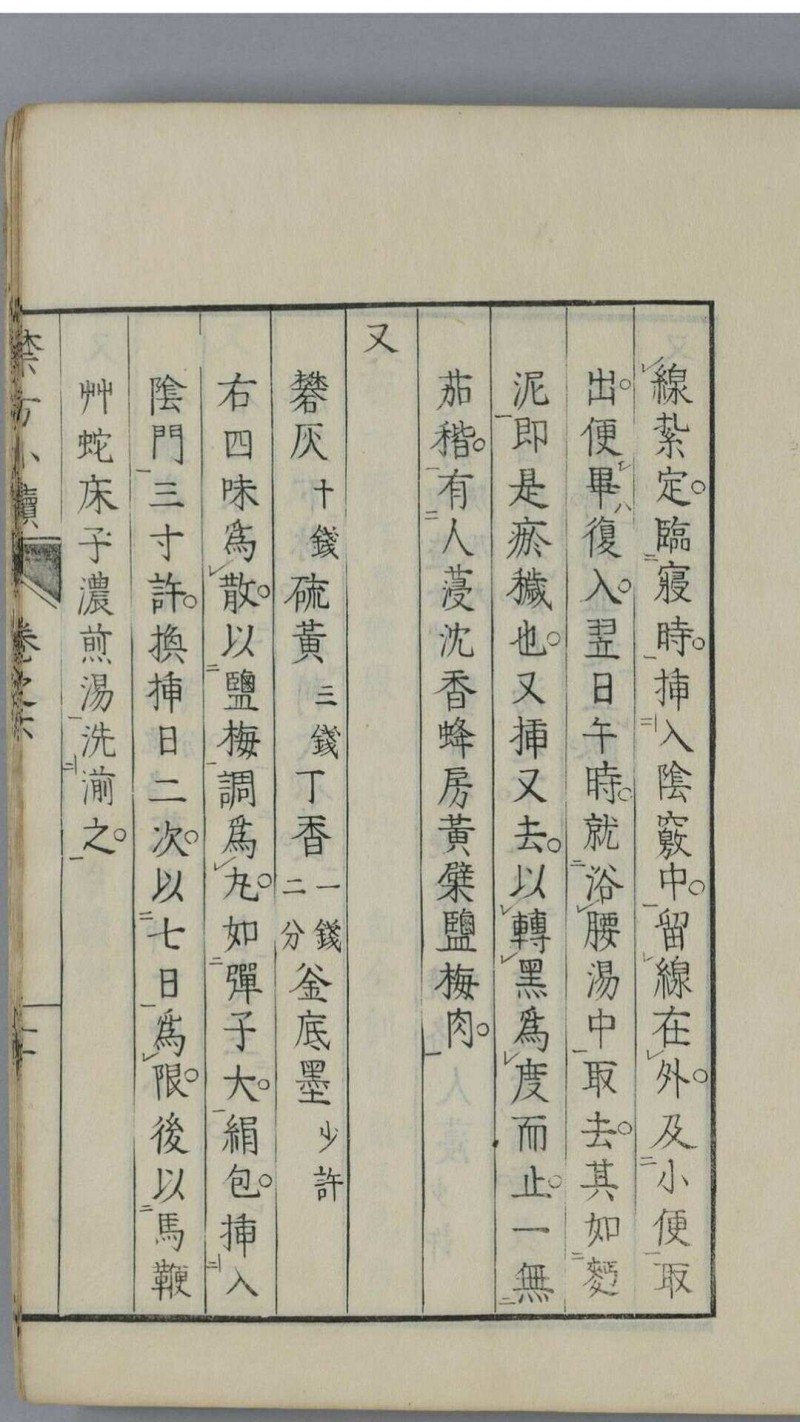 線紮定。臨寝時。挿入陰竅中。留線在外。及小便取
出。便畢復入。翌日午時。就浴腰湯中取去。其如
泥即是瘀穢也。又挿又去。以轉黑為度而止。一無
茄稭。有人葠沈香蜂房黄檗鹽梅肉。
又
礬灰十錢硫黄三錢丁香一錢二分釜底墨少許
右四味爲散。以鹽梅調爲丸。如彈子大。絹包。挿入
陰門三寸許。換挿日二次。以七日爲限。後以馬鞭
艸蛇床子濃煎湯洗湔之。
禁方小牘 卷之